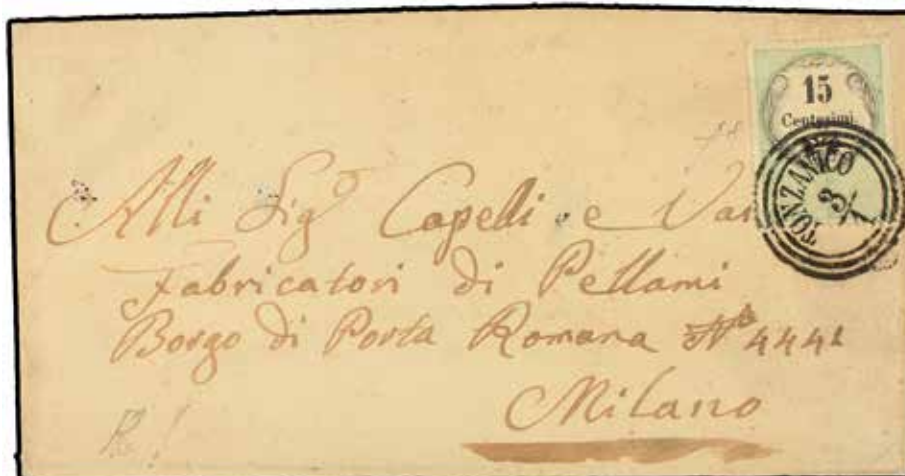 15
Centesimi
TONZANICO
3/1
Alli Sig.ⁱ Capelli e
Fabricatori di Pellami
Borgo di Porta Romana N° 4441
Milano